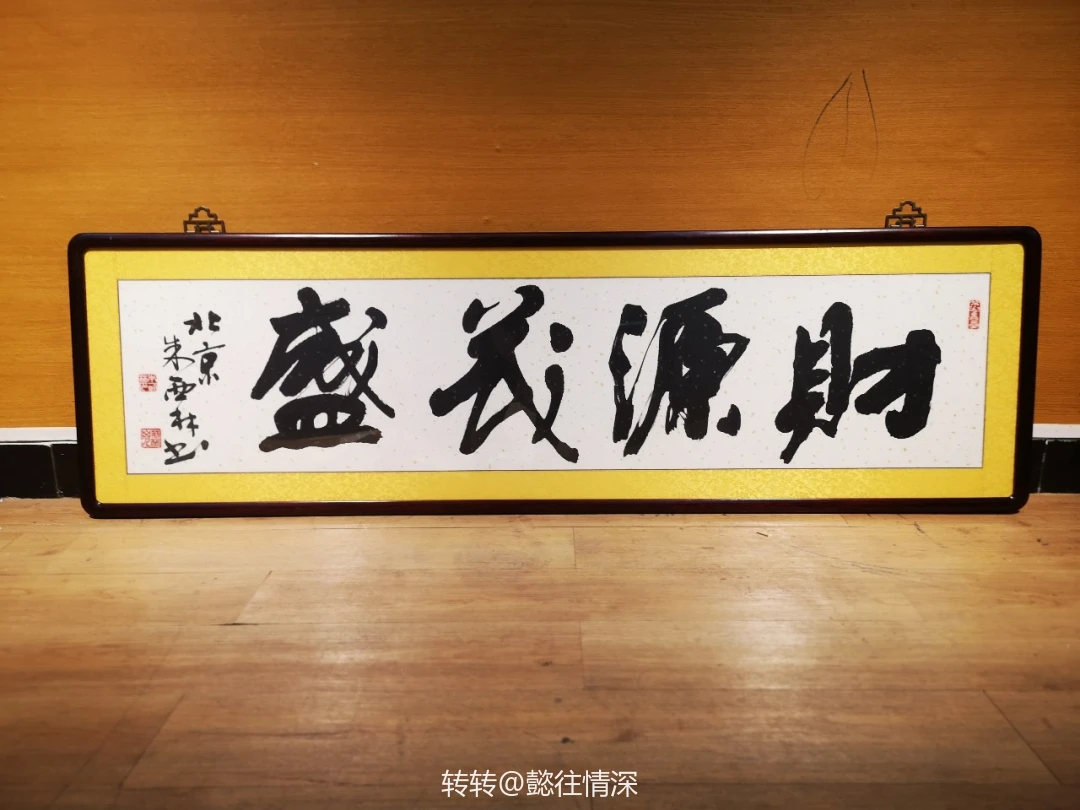 财源茂盛
北京
朱西林书
转转@懿往情深